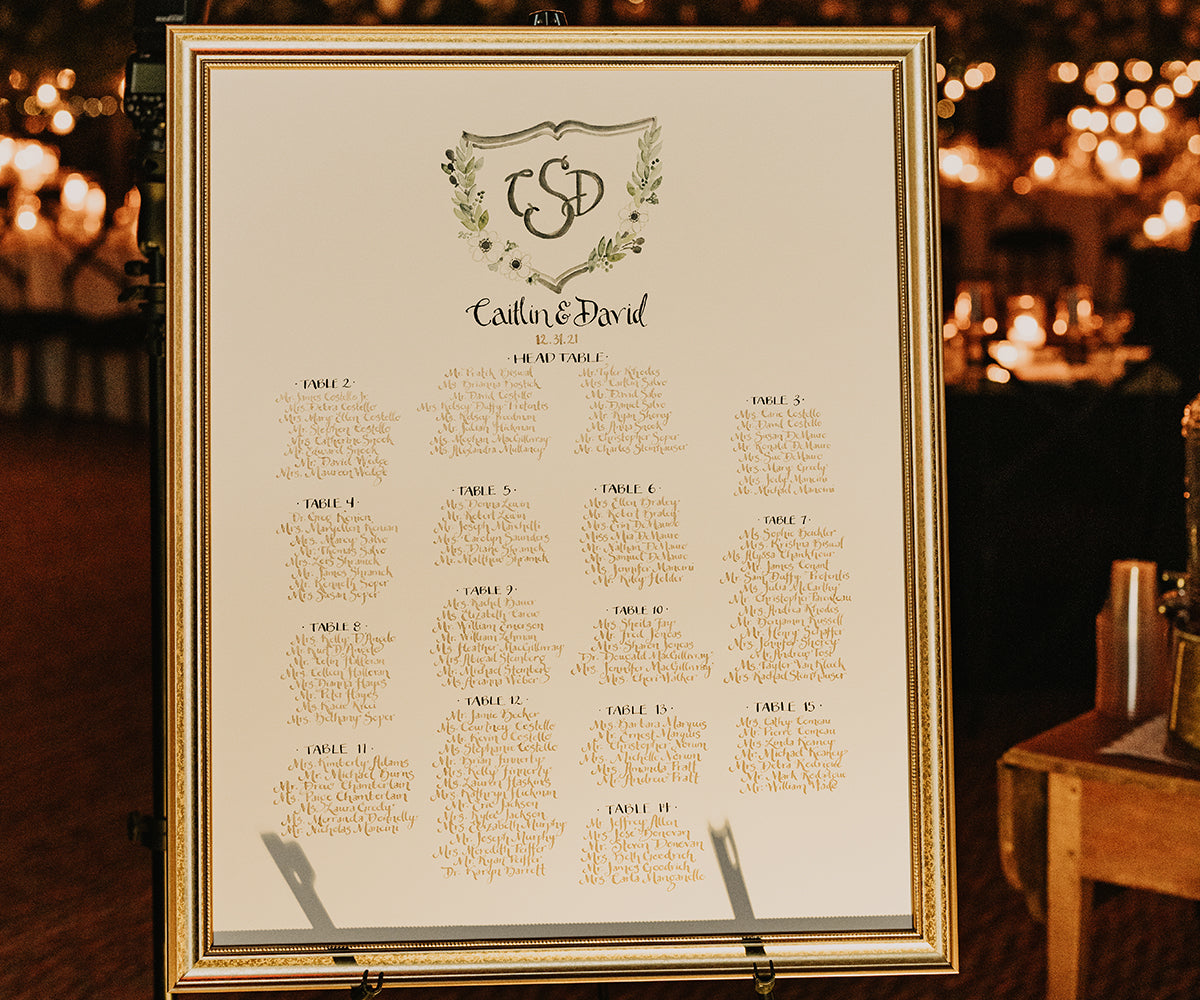 CSD
Caitlin & David
12.31.21
· HEAD TABLE ·
Mr. Pratik Biswal
Ms. Brianna Bostick
Mr. David Costello
Mrs. Kelsey Duffy-Protentis
Ms. Kelsey Friedman
Mr. Julian Hickman
Ms. Meghan MacGillivray
Ms. Alexandra Mullaney
Mr. Tyler Rhodes
Mrs. Caitlin Salvo
Mr. David Salvo
Mr. Daniel Salvo
Mr. Ryan Shorey
Ms. Anna Snook
Mr. Christopher Soper
Mr. Charles Steinhauser
· TABLE 2 ·
Mr. James Costello Jr.
Mrs. Debra Costello
Mrs. Mary Ellen Costello
Mr. Stephen Costello
Mrs. Catherine Snook
Mr. Edward Snook
Mr. David Wedge
Mrs. Maureen Wedge
· TABLE 3 ·
Mrs. Costello
Mr. David Costello
Mrs. Susan DeMauro
Mr. Ronald DeMauro
Mrs. Sue DeMauro
Mrs. Mary Greely
Mrs. Jody Mancini
Mr. Michael Mancini
· TABLE 4 ·
Dr. Greg Kenien
Mrs. Maryellen Kenien
Mrs. Marcy Salvo
Mr. Thomas Salvo
Mrs. Lois Shramek
Mr. James Shramek
Mr. Kenneth Soper
Mrs. Susan Soper
· TABLE 5 ·
Mrs. Donna Lewin
Mr. Robert Lewin
Mr. Joseph Marchelli
Mrs. Carolyn Saunders
Mrs. Diane Shramek
Mr. Matthew Shramek
· TABLE 6 ·
Mrs. Ellen Braley
Mr. Robert Braley
Mrs. Erin DeMauro
Miss Mia DeMauro
Mr. Nathan DeMauro
Mr. Samuel DeMauro
Ms. Jennifer Mancini
Mr. Riley Holder
· TABLE 7 ·
Ms. Sophie Beichler
Mrs. Krishna Biswal
Ms. Alyssa Chankhour
Mr. James Conant
Mr. Sam Duffy-Protentis
Ms. Julia McCarthy
Mr. Christopher Brodeau
Mrs. Andrea Rhodes
Mr. Benjamin Russell
Mr. Henry Schiffer
Mrs. Jennifer Shorey
Mr. Andrew Tosi
Ms. Taylor Van Kleeck
Mrs. Rachael Steinhauser
· TABLE 8 ·
Mrs. Kelly D'Angelo
Mr. Kurt D'Angelo
Mr. Colin Halloran
Mrs. Colleen Halloran
Mrs. Deanna Hayes
Mr. Peter Hayes
Ms. Katie Ricci
Mrs. Bethany Soper
· TABLE 9 ·
Mrs. Rachel Bauer
Ms. Elizabeth Carew
Mr. William Emerson
Mr. William Lehman
Ms. Heather MacGillivray
Ms. Abigail Steinberg
Mr. Michael Steinberg
Ms. Arianna Weber
· TABLE 10 ·
Mrs. Sheila Fay
Mr. Fred Joncas
Mrs. Sharon Joncas
Dr. Donald MacGillivray
Mrs. Jennifer MacGillivray
Mrs. Cheri Walker
· TABLE 11 ·
Mrs. Kimberly Adams
Mr. Michael Burns
Mr. Drew Chamberlain
Ms. Paige Chamberlain
Ms. Laura Greely
Ms. Merranda Donnelly
Mr. Nicholas Mancini
· TABLE 12 ·
Mr. Jamie Becker
Ms. Courtney Costello
Mr. Kevin J Costello
Ms. Stephanie Costello
Mr. Brian Finnerty
Mrs. Kelly Finnerty
Ms. Lauren Haskins
Ms. Kathryn Hickman
Mr. Eric Jackson
Mrs. Kylee Jackson
Mrs. Elizabeth Murphy
Mr. Joseph Murphy
Mrs. Meredith Peiffer
Mr. Ryan Peiffer
Dr. Karyn Barrett
· TABLE 13 ·
Mrs. Barbara Marquis
Mr. Ernest Marquis
Mr. Christopher Norum
Mrs. Michelle Norum
Mrs. Amanda Pratt
Mr. Andrew Pratt
· TABLE 14 ·
Mr. Jeffrey Allen
Mrs. Jose Donovan
Mr. Steven Donovan
Mrs. Beth Goodrich
Mr. James Goodrich
Mrs. Carla Manganello
· TABLE 15 ·
Mrs. Cathy Comeau
Mr. Pierre Comeau
Mrs. Linda Keaney
Mr. Michael Keaney
Mrs. Debra Rodrigue
Mr. Mark Rodrigue
Mr. William Wade